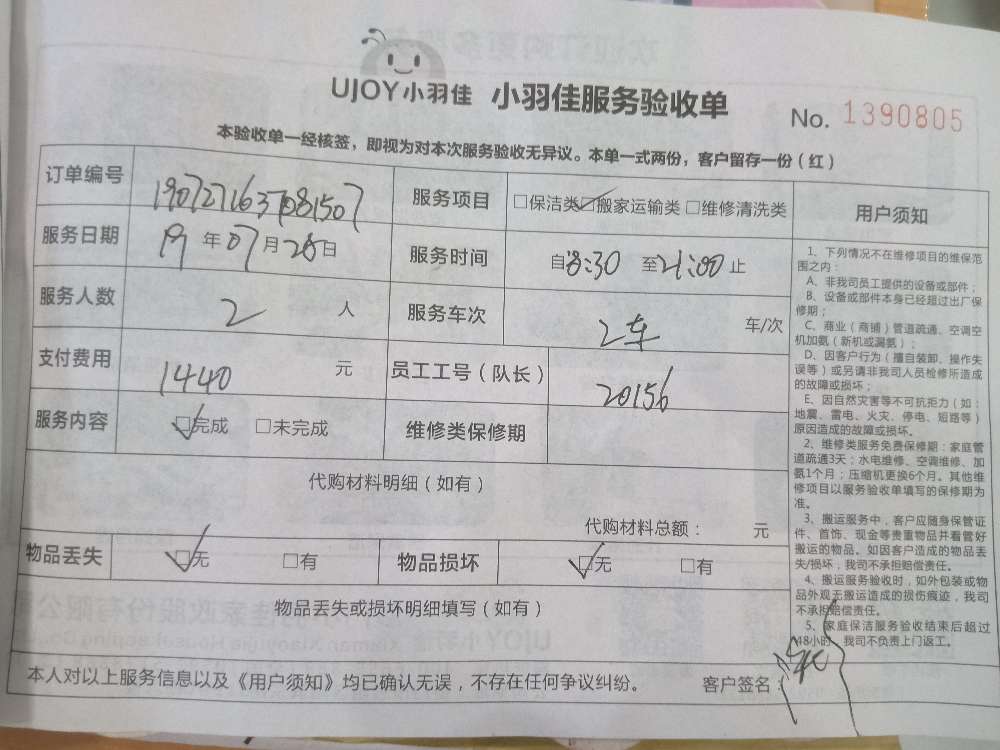 UJOY小羽佳 小羽佳服务验收单 No. 1390805
本验收单一经核签，即视为对本次服务验收无异议。本单一式两份，客户留存一份（红）
订单编号 1907271637081507 服务项目 □保洁类☑搬家运输类□维修清洗类
服务日期 19年07月28日 服务时间 自8:30至21:00止
服务人数 2 人 服务车次 2车 车/次
支付费用 1440 元 员工工号（队长） 20156
服务内容 ☑完成 □未完成 维修类保修期
代购材料明细（如有）
代购材料总额： 元
物品丢失 ☑无 □有 物品损坏 ☑无 □有
物品丢失或损坏明细填写（如有）
本人对以上服务信息以及《用户须知》均已确认无误，不存在任何争议纠纷。 客户签名：
用户须知
1、下列情况不在维修项目的维保范
围之内：
A、非我司员工提供的设备或部件；
B、设备或部件本身已经超过出厂保
修期；
C、商业（商铺）管道疏通、空调空
机加氨（新机或漏氨）；
D、因客户行为（擅自装卸、操作失
误等）或另请非我司人员检修所造成
的故障或损坏；
E、因自然灾害等不可抗拒力（如：
地震、雷电、火灾、停电、短路等）
原因造成的故障或损坏。
2、维修类服务免费保修期：家庭管
道疏通3天；水电维修、空调维修、加
氨1个月；压缩机更换6个月。其他维
修项目以服务验收单填写的保修期为
准。
3、搬运服务中，客户应随身保管证
件、首饰、现金等贵重物品并看管好
搬运的物品。如因客户造成的物品丢
失/损坏，我司不承担赔偿责任。
4、搬运服务验收时，如外包装或物
品外观无搬运造成的损伤痕迹，我司
不承担赔偿责任。
5、家庭保洁服务验收结束后超过
48小时，我司不负责上门返工。